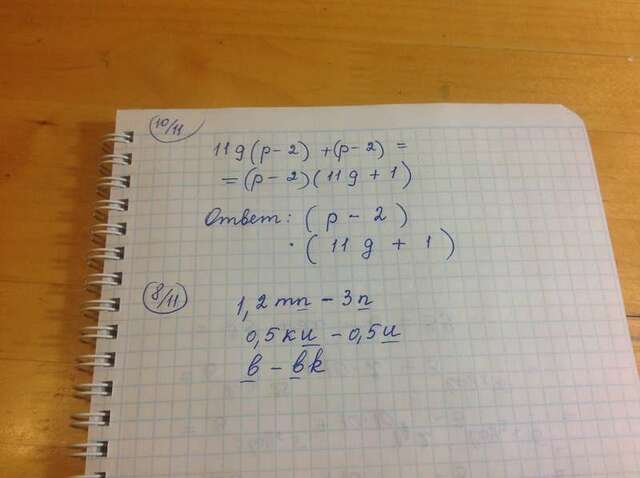 10/11
11g(p-2)+(p-2)=
=(p-2)(11g+1)
Ответ: (p-2)
·(11g+1)
8/11
1,2mn-3n
0,5ки-0,5и
в-вk